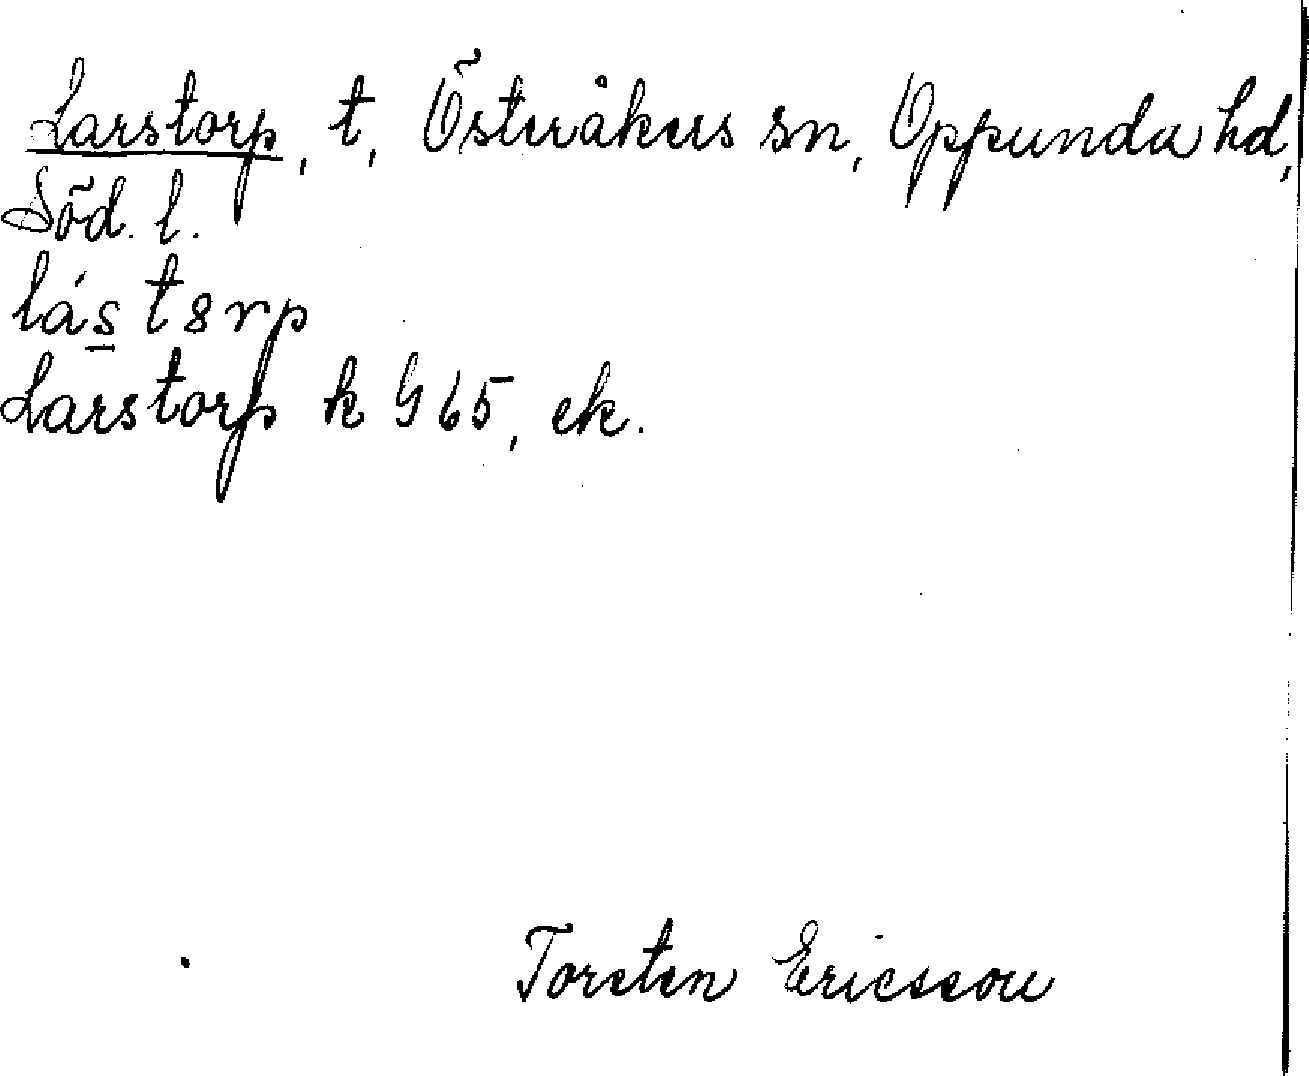 Larstorp, t, Österåkers sn, Oppunda hd,
Söd. l.
lás t8rp
Larstorp k G 65, ek.
Torsten Ericsson